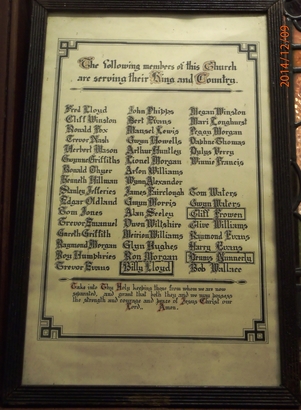 2014/12/09
The following members of this Church
are serving their King and Country.
Fred Lloyd
Cliff Winston
Ronald Fox
Trevor Nash
Herbert Mason
Gwynne Griffiths
Ronald Thyer
Kenneth Hillman
Stanley Jefferies
Edgar Oldland
Tom Jones
Trevor Emanuel
Gareth Griffith
Raymond Morgan
Roy Humphries
Trevor Evans
John Phipps
Bert Evans
Mansel Lewis
Gwyn Howells
Arthur Huntley
Lionel Morgan
Arfon Williams
Wynn Alexander
James Fairclough
Gwyn Morris
Alan Seeley
Owen Wiltshire
Meirion Williams
Glyn Hughes
Ron Morgan
Billy Lloyd
Megan Winston
Mari Longhurst
Peggy Morgan
Daphne Thomas
Dylys Perry
Winnie Francis
Tom Waters
Gwyn Waters
Cliff Frowen
Clive Williams
Raymond Evans
Harry Evans
Dennis Nunnerly
Bob Wallace
Take into Thy Holy keeping those from whom we are now
separated, and grant that both they and we may possess
the strength and courage and peace of Jesus Christ our
Lord. Amen.